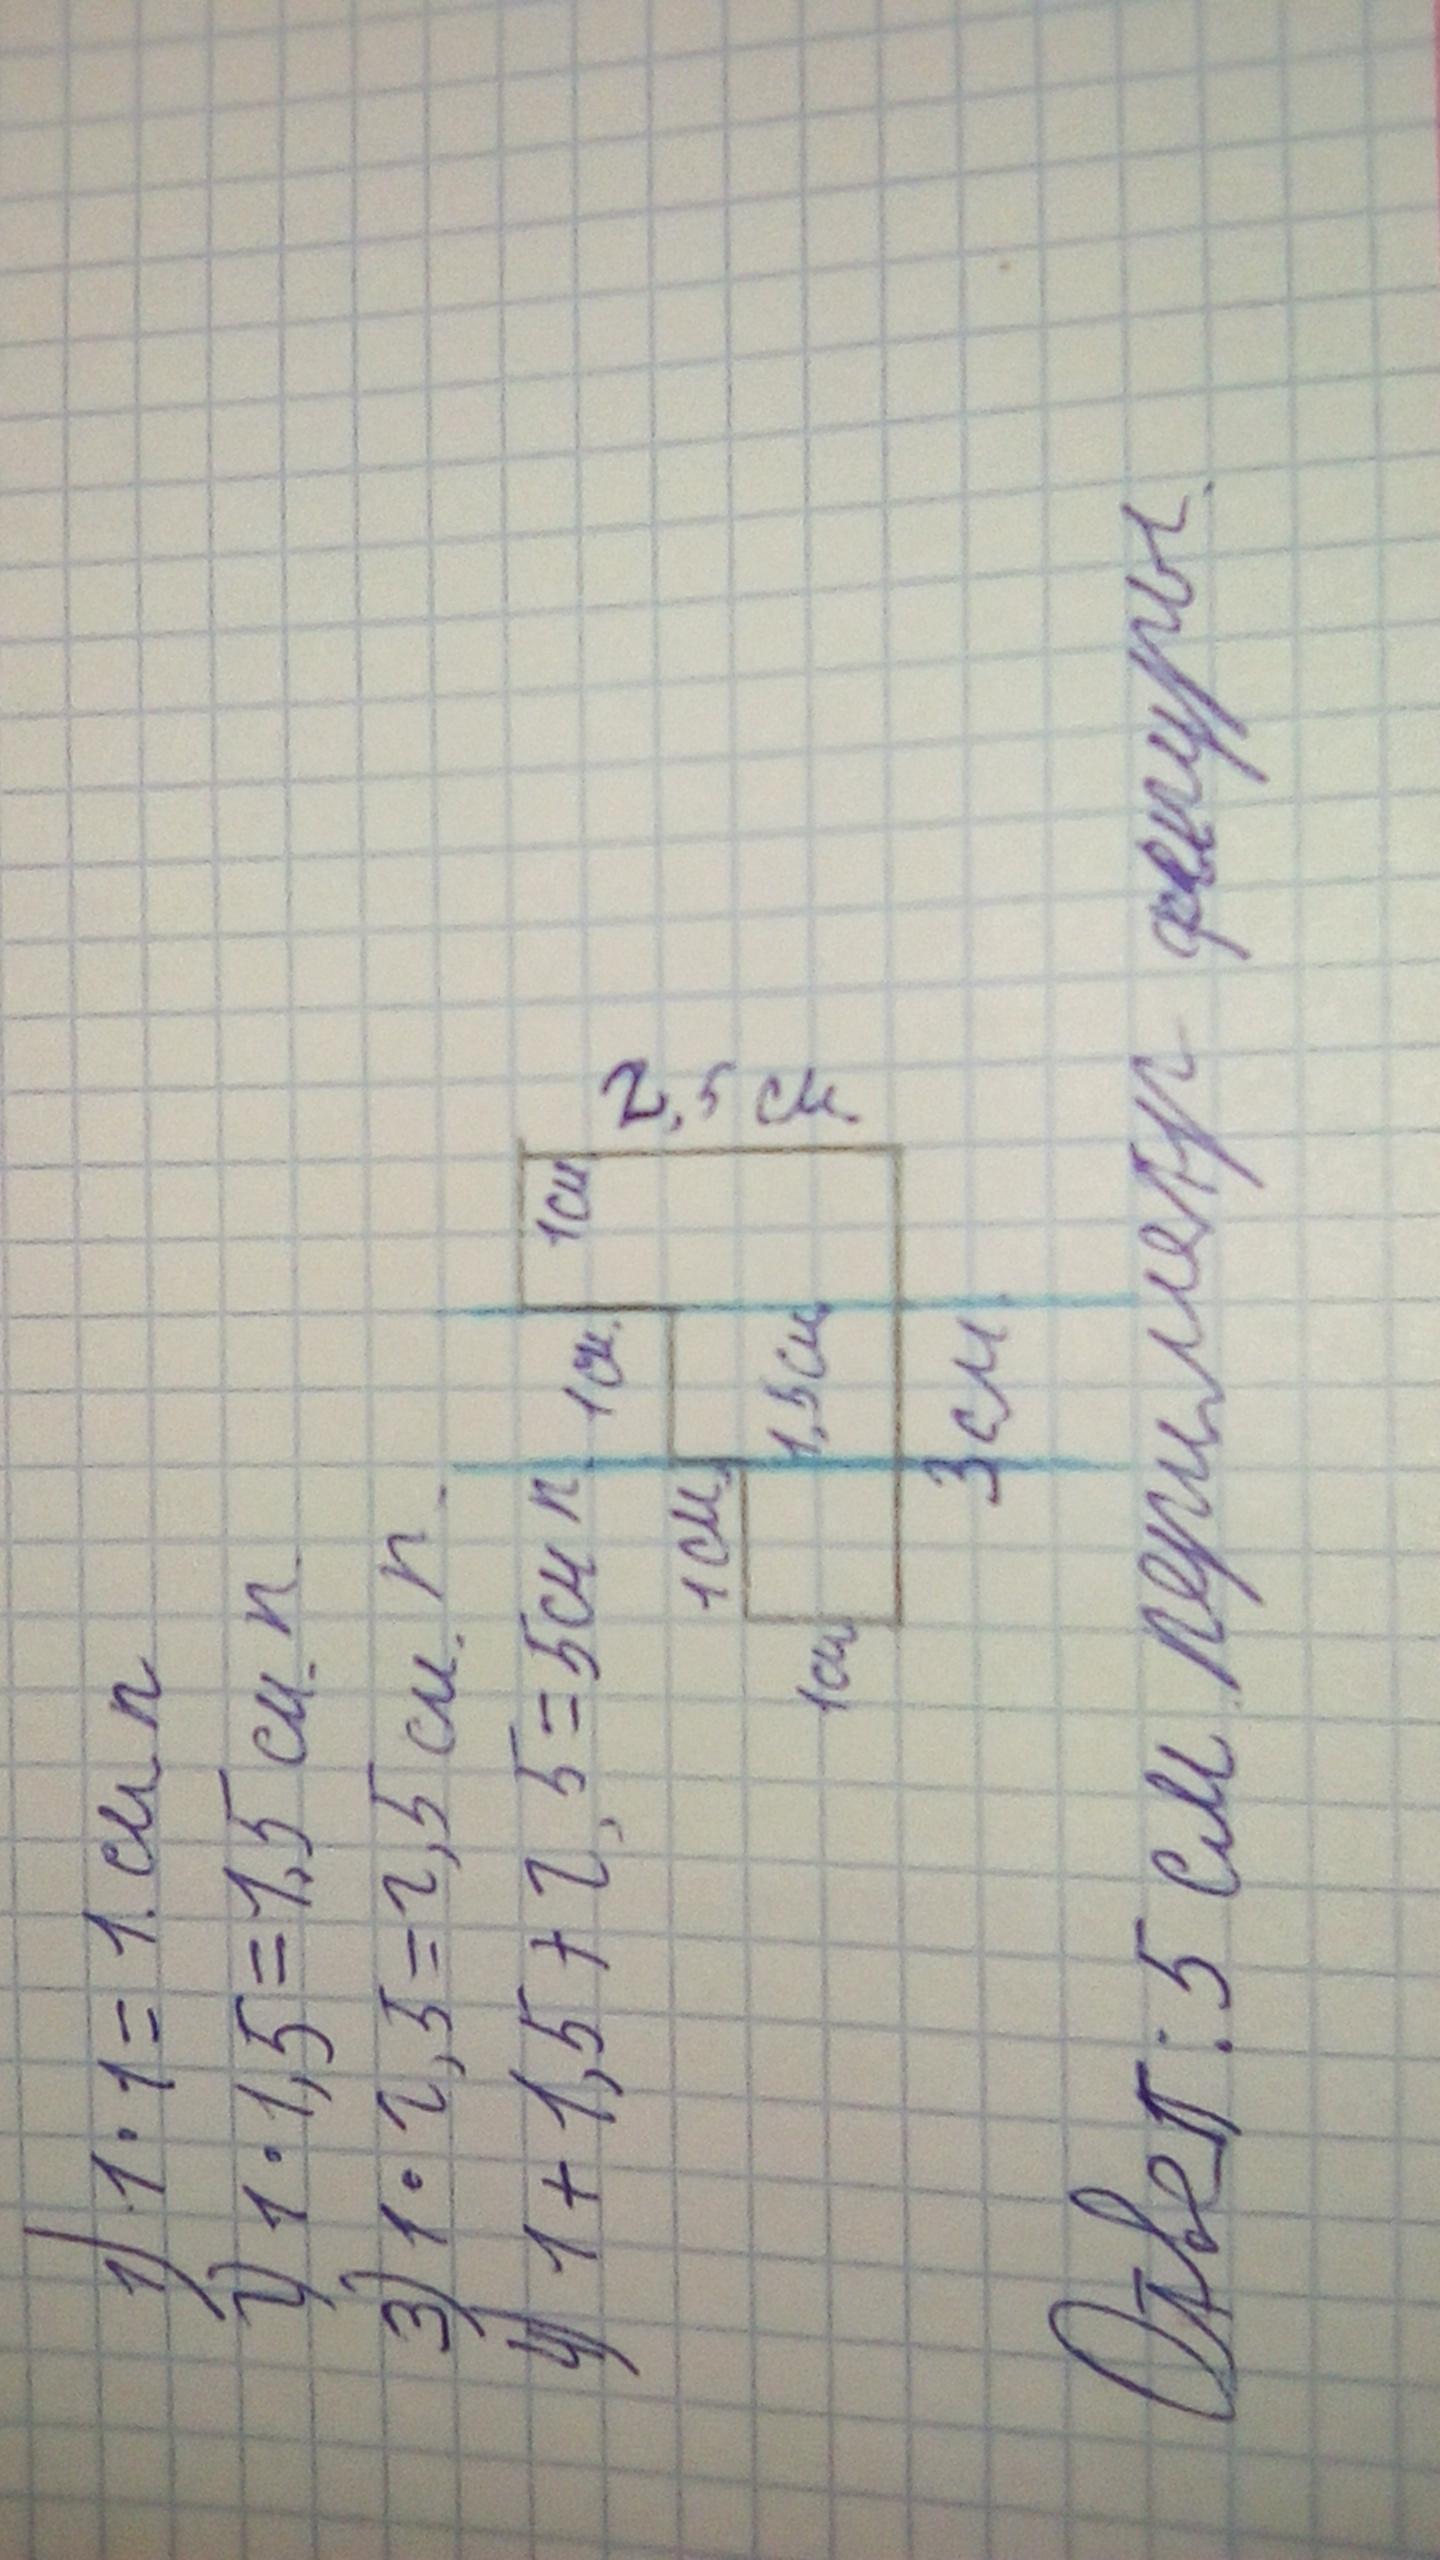 1) 1·1=1.см п
2) 1·1,5=1,5 см. п
3) 1·2,5=2,5 см. п.
4) 1+1,5+2,5=5см п
1см
2,5 см.
1см.
1см.
1,5см
1см
3 см
Ответ: 5 см периметр фигуры.